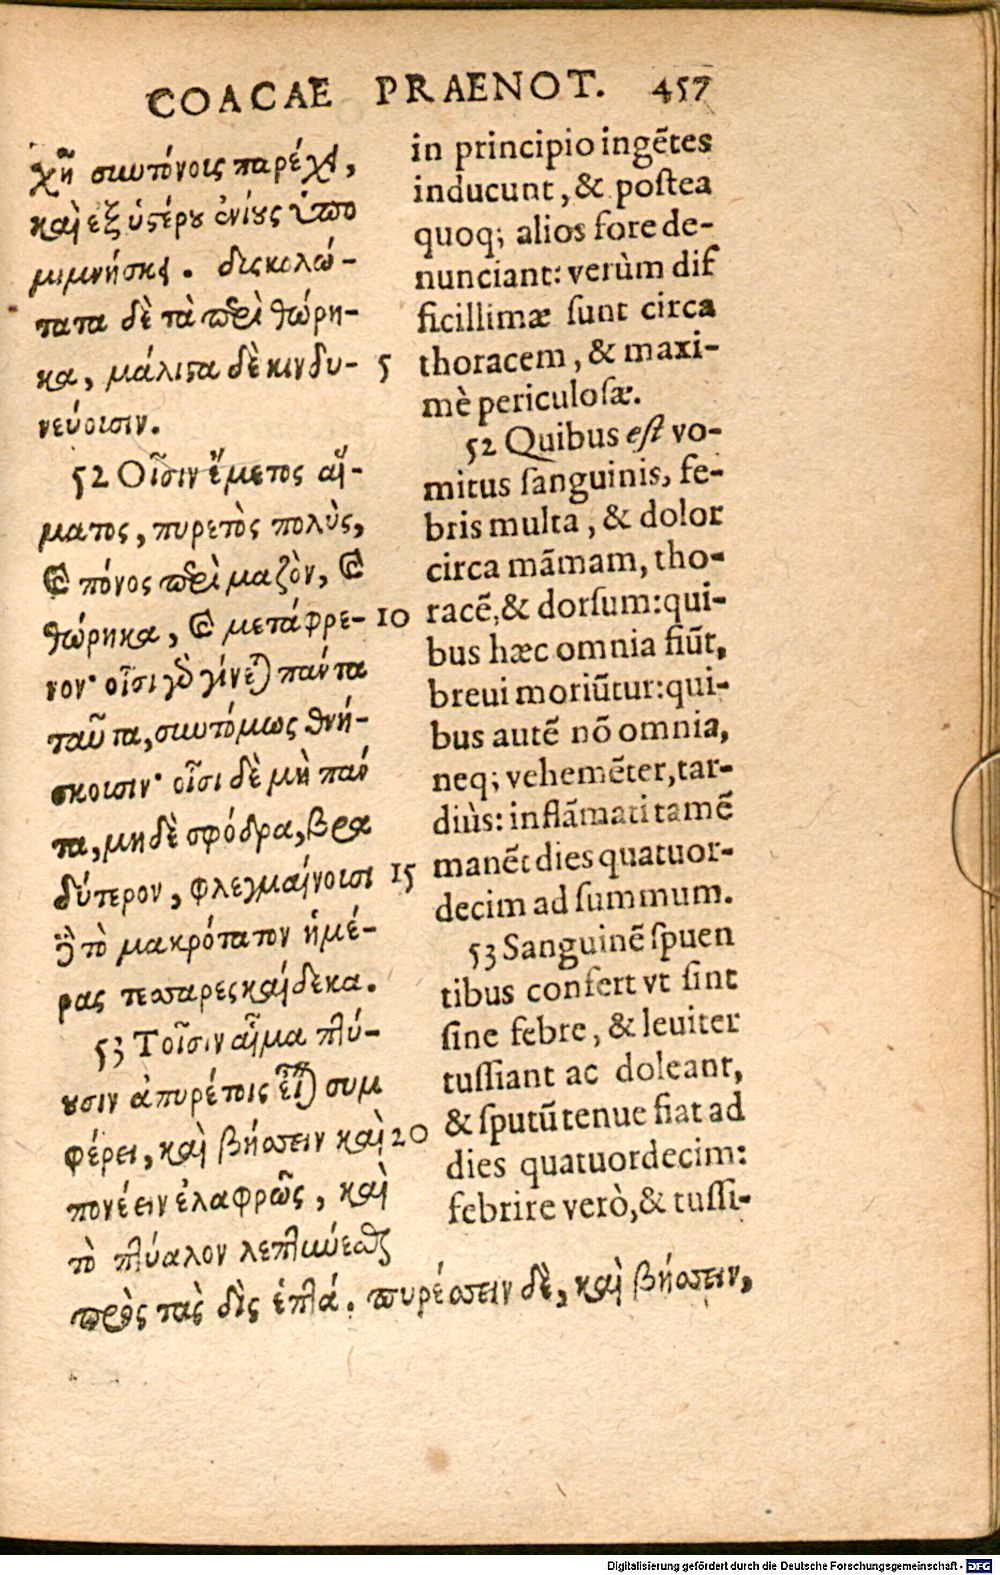 COACAE PRAENOT. 457
χῆ συντόνοις παρέχει,
καὶ ἐξ ὑστέρου ἐνίους ὑπο
μιμνήσκει. δυσκολώ-
τατα δὲ τὰ περὶ θώρη-
κα, μάλιστα δὲ κινδυ-
νεύουσιν.
52 Οἷσιν ἔμετος αἵ-
ματος, πυρετὸς πολὺς,
καὶ πόνος περὶ μαζὸν, καὶ
θώρηκα, καὶ μετάφρε-
νον· οἷσι γὸ γίνεται πάντα
ταῦτα, συντόμως θνή-
σκουσιν· οἷσι δὲ μὴ πάν
τα, μηδὲ σφόδρα, βρα
δύτερον, φλεγμαίνουσι
δὲ τὸ μακρότατον ἡμέ-
ρας τεσσαρεσκαίδεκα.
53 Τοῖσιν αἷμα πτύ-
ουσιν ἀπυρέτοις εἶναι συμ
φέρει, καὶ βήσσειν καὶ
πονέειν ἐλαφρῶς, καὶ
τὸ πτύαλον λεπτύνεσθαι
πρὸς τὰς δὶς ἑπτά. πυρέσσειν δὲ, καὶ βήσσειν,
5
10
15
20
in principio ingẽtes
inducunt, & postea
quoq; alios fore de-
nunciant: verùm dif
ficillimæ sunt circa
thoracem, & maxi-
mè periculosæ.
52 Quibus est vo-
mitus sanguinis, fe-
bris multa, & dolor
circa mãmam, tho-
racẽ, & dorsum: qui-
bus hæc omnia fiũt,
breui moriũtur: qui-
bus autẽ nõ omnia,
neq; vehemẽter, tar-
diùs: inflãmati tamẽ
manẽt dies quatuor-
decim ad summum.
53 Sanguinẽ spuen
tibus confert vt sint
sine febre, & leuiter
tussiant ac doleant,
& sputũ tenue fiat ad
dies quatuordecim:
febrire verò, & tussi-
Digitalisierung gefördert durch die Deutsche Forschungsgemeinschaft - DFG